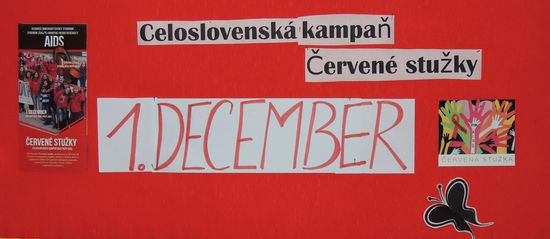 Celoslovenská kampaň
Červené stužky
1. DECEMBER
AIDS
DECEMBER
ČERVENÉ STUŽKY
ČERVENÁ STUŽKA